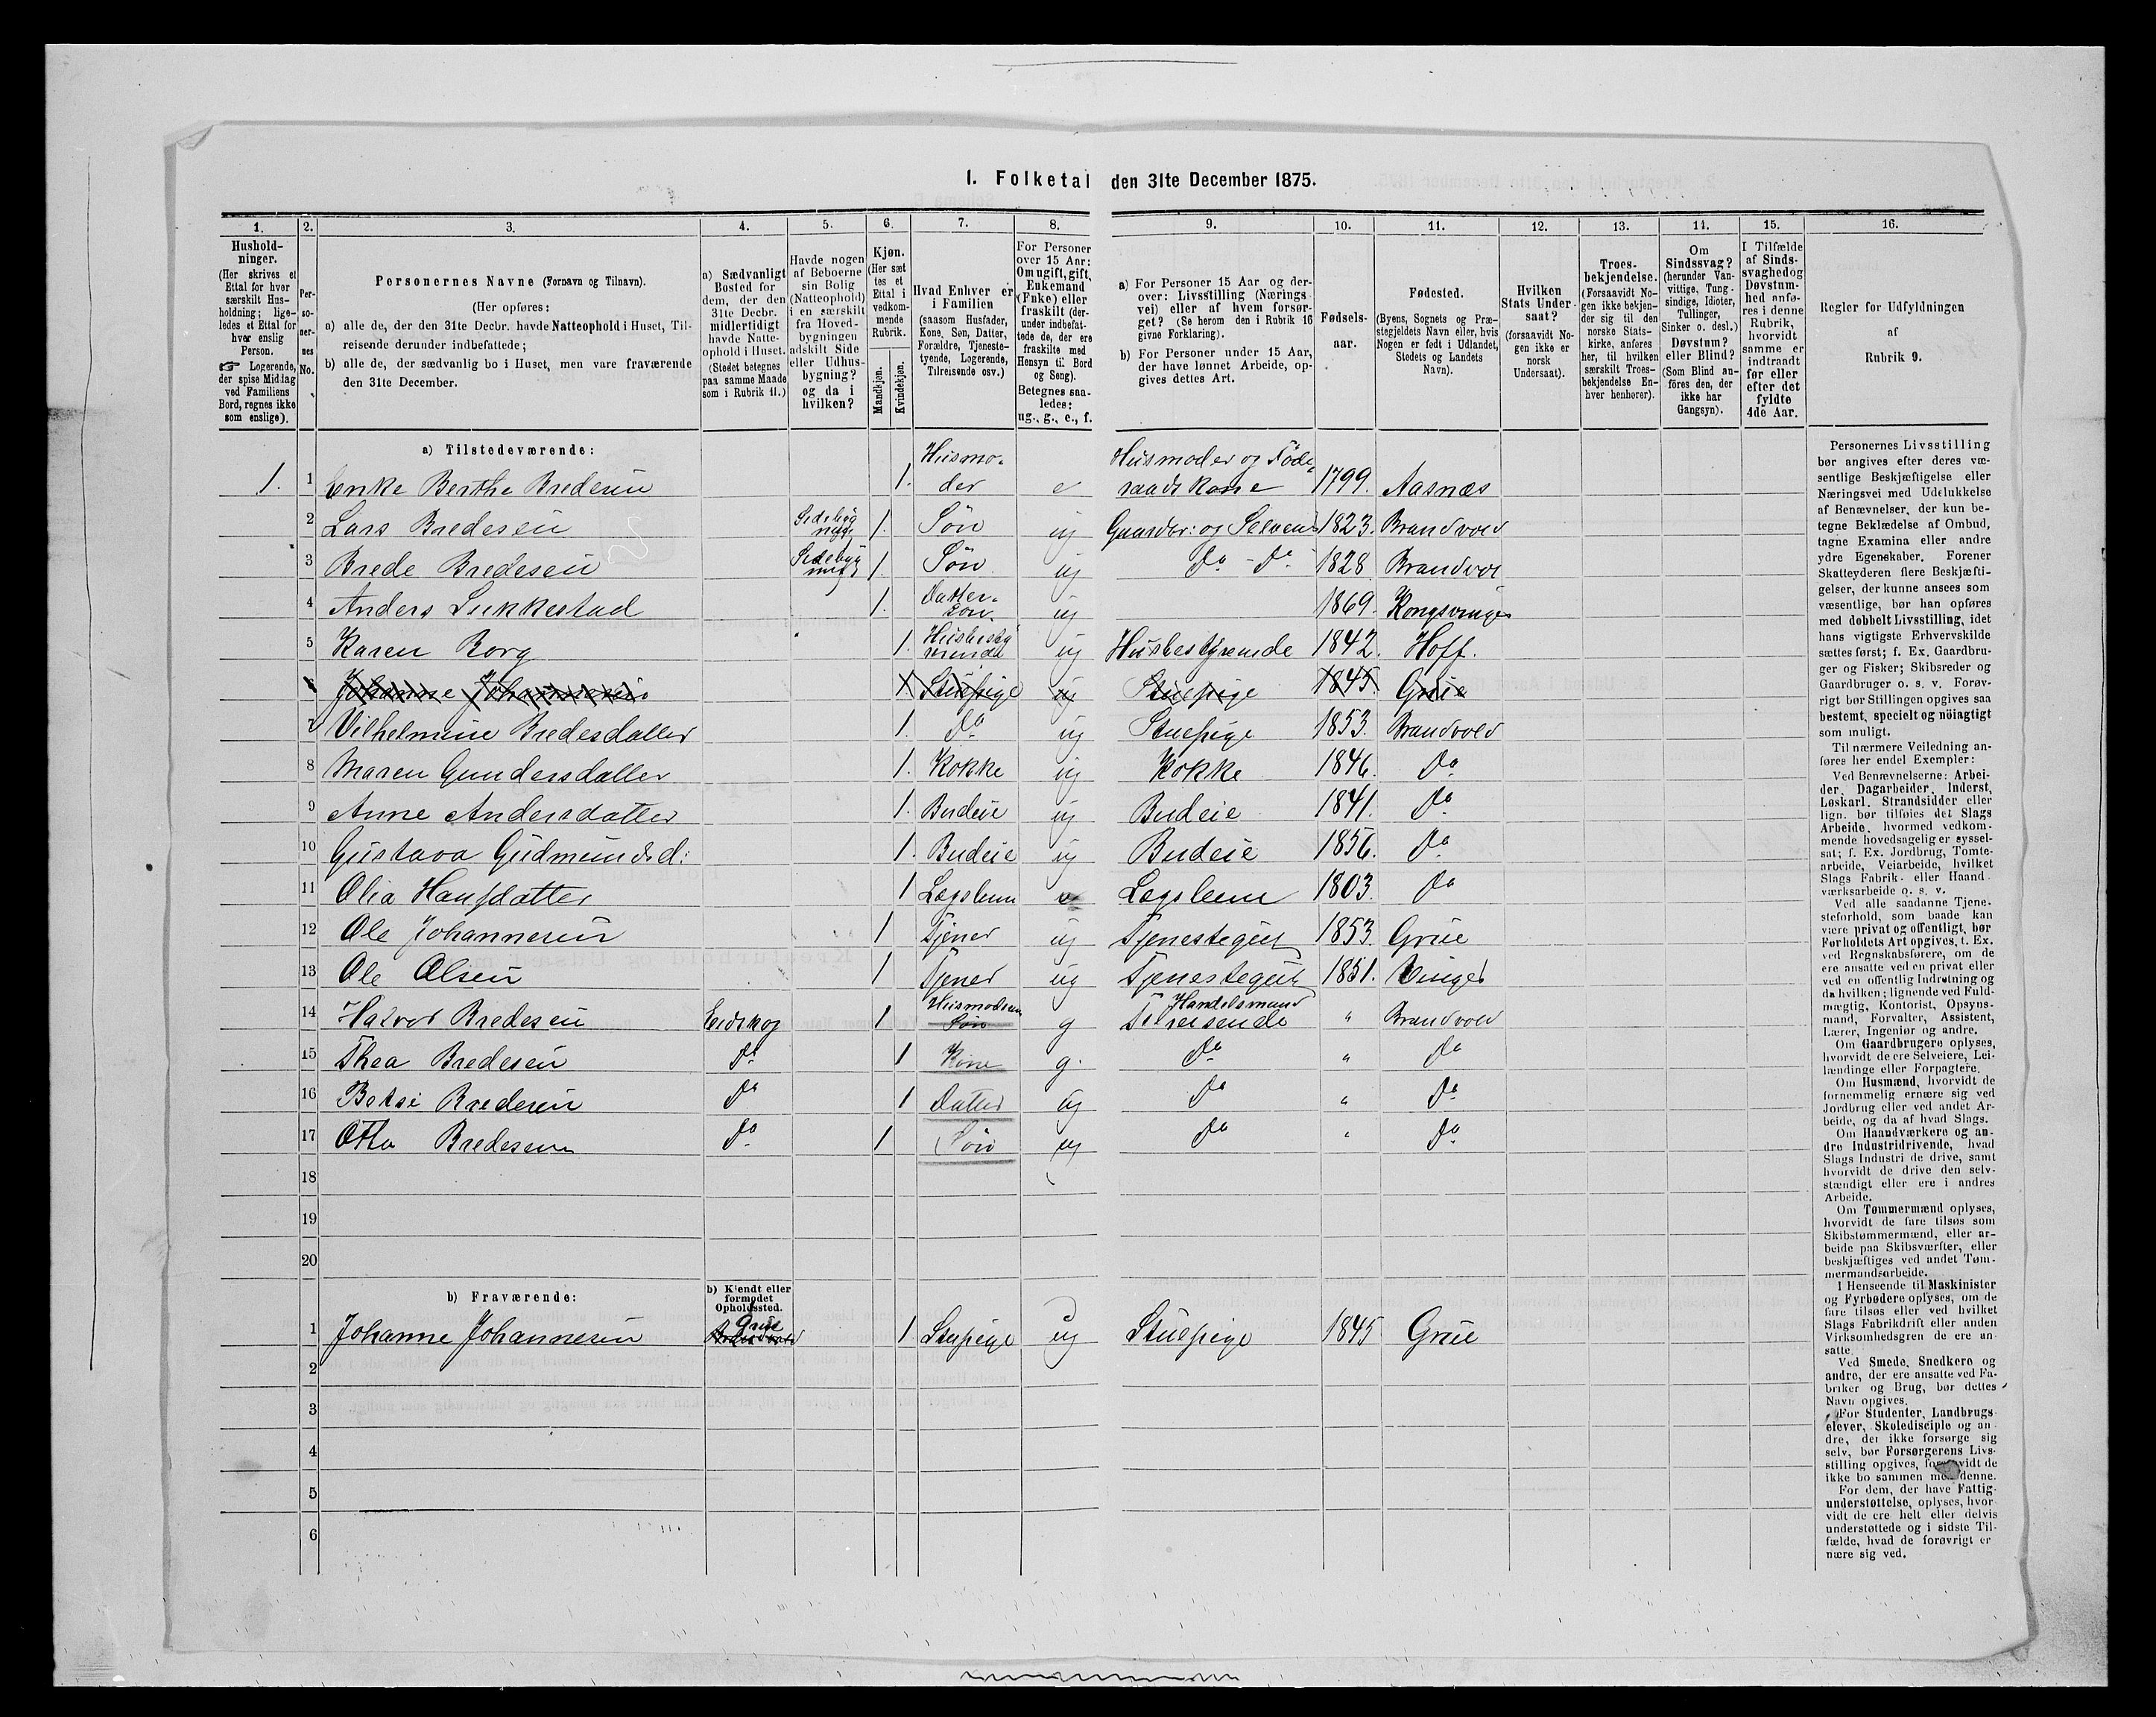 I. Folketal den 31te December 1875.
1. 2. 3. 4. 5. 6. 7. 8. 9. 10. 11. 12. 13. 14. 15. 16.
Hushold-
ninger.
(Her skrives et
Ettal for hver
særskilt Hus-
holdning; lige-
ledes et Ettal for
hver enslig
Person.
☞ Logerende,
der spise Middag
ved Familiens
Bord, regnes ikke
som enslige).
Per-
so-
ner-
nes
No.
Personernes Navne (Fornavn og Tilnavn).
(Her opføres:
a) alle de, der den 31te Decbr. havde Natteophold i Huset, Til-
reisende derunder indbefattede;
b) alle de, der sædvanlig bo i Huset, men vare fraværende
den 31te December.
a) Sædvanligt
Bosted for
dem, der den
31te Decbr.
midlertidigt
havde Natte-
ophold i Huset.
(Stedet betegnes
paa samme Maade
som i Rubrik 11.)
Havde nogen
af Beboerne
sin Bolig
(Natteophold)
i en særskilt
fra Hoved-
bygningen
adskilt Side
eller Udhus-
bygning?
og da i
hvilken?
Kjøn.
(Her sæt
tes et
Ettal i
vedkom-
mende
Rubrik.
Mandkjøn.
Kvindekjøn.
Hvad Enhver er
i Familien
(saasom Husfader,
Kone, Søn, Datter,
Forældre, Tjeneste-
tyende, Logerende,
Tilreisende osv.)
For Personer
over 15 Aar:
Om ugift, gift,
Enkemand
(Enke) eller
fraskilt (der-
under indbefat-
tede de, der ere
fraskilte med
Hensyn til Bord
og Seng).
Betegnes saa-
ledes:
ug., g., e., f.
a) For Personer 15 Aar og der-
over: Livsstilling (Nærings
vei) eller af hvem forsør-
get? (Se herom den i Rubrik 16
givne Forklaring).
b) For Personer under 15 Aar,
der have lønnet Arbeide, op-
gives dettes Art.
Fødsels-
aar.
Fødested.
(Byens, Sognets og Præ-
stegjeldets Navn eller, hvis
Nogen er født i Udlandet,
Stedets og Landets
Navn).
Hvilken
Stats Under-
saat?
(forsaavidt No-
gen ikke er
norsk
Undersaat).
Troes-
bekjendelse.
(Forsaavidt No-
gen ikke bekjen-
der sig til den
norske Stats-
kirke, anføres
her, til hvilken
særskilt Troes-
bekjendelse En-
hver henhører).
Om
Sindssvag?
(herunder Van-
vittige, Tung-
sindige, Idioter,
Tullinger,
Sinker o. desl.)
Døvstum?
eller Blind?
(Som Blind an-
føres den, der
ikke har
Gangsyn).
I Tilfælde
af Sinds-
svaghed og
Døvstum-
hed anfø-
res i denne
Rubrik,
hvorvidt
samme er
indtraadt
før eller
efter det
fyldte
4de Aar.
Regler for Udfyldningen
af
Rubrik 9.
a) Tilstedeværende:
1. 1 Enke Berthe Bredesen 1. Husmo-
der e Husmoder og Föde-
raads Kone 1799. Aasnæs
2 Lars Bredesen Sidebyg
ning 1. Sön ug Gaardbr: og Selveier 1823. Brandvold
3 Brede Bredesen Sidebyg
ning 1. Sön ug Do - Do 1828 Brandvol
4 Anders Sukkestad 1. Datter-
sön. ug 1869. Kongsvinger
5 Karen Borg 1. Husbesty
rerinde ug Husbestyrende 1842. Hoff.
6 Johanne Johannesen 1. Stuepige ug Stuepige 1845. Grue
7 Vilhelmine Bredesdatter 1. Do ug Stuepige 1853. Brandvold
8 Maren Gundersdatter 1. Kokke ug Kokke 1846. Do
9 Anne Andersdatter 1. Budeie ug Budeie 1841. Do
10 Gustava Gudmundsd: 1. Budeie ug Budeie 1856. Do
11 Olia Hansdatter 1 Lægslem Lægslem 1803. Do
12 Ole Johannesen 1 Tjener ug Tjenestegut 1853 Grue
13 Ole Olsen 1 Tjener ug Tjenestegut 1851. Vinger
14 Halvor Bredesen Eidskog 1 Husmoderen
Sön g Handelsmand
Tilreisende " Brandvold
15 Thea Bredesen Do 1 Kone g. Do " Do
16 Betsi Bredesen Do 1 Datter ug Do " Do
17 Otto Bredesen Do 1 Sön ug Do " Do
18
19
20
b) Fraværende:
b) Kjendt eller
formodet
Opholdssted.
1 Johanne Johannesen Grue
1 Stupige ug Stuepige 1845 Grue
2
3
4
5
6
Personernes Livsstilling
bør angives efter deres væ-
sentlige Beskjæftigelse eller
Næringsvei med Udelukkelse
af Benævnelser, der kun be-
tegne Beklædelse af Ombud,
tagne Examina eller andre
ydre Egenskaber. Forener
Skatteyderen flere Beskjæfti-
gelser, der kunne ansees som
væsentlige, bør han opføres
med dobbelt Livsstilling, idet
hans vigtigste Erhvervskilde
sættes først; f. Ex. Gaardbru-
ger og Fisker; Skibsreder og
Gaardbruger o. s. v. Forøv-
rigt bør Stillingen opgives saa
bestemt, specielt og nöiagtigt
som muligt.
Til nærmere Veiledning an-
føres her endel Exempler:
Ved Benævnelserne: Arbei-
der, Dagarbeider, Inderst,
Løskarl, Strandsidder eller
lign. bør tilføies det Slags
Arbeide, hvormed vedkom-
mende hovedsagelig er syssel-
sat; f. Ex. Jordbrug, Tomte-
arbeide, Veiarbeide, hvilket
Slags Fabrik- eller Haand-
værksarbeide o. s. v.
Ved alle saadanne Tjene-
steforhold, som baade kan
være privat og offentligt, bør
Forholdets Art opgives, t. Ex.
ved Regnskabsførere, om de
ere ansatte ved en privat eller
ved en offentlig Indretning og
da hvilken; lignende ved Fuld-
mægtig, Kontorist, Opsyns-
mand, Forvalter, Assistent,
Lærer, Ingeniør og andre.
Om Gaardbrugere oplyses,
hvorvidt de ere Selveiere, Lei-
lændinge eller Forpagtere.
Om Husmænd, hvorvidt de
fornemmelig ernære sig ved
Jordbrug eller ved andet Ar-
beide, og da af hvad Slags.
Om Haandværkere og an-
dre Industridrivende, hvad
Slags Industri de drive, samt
hvorvidt de drive den selv-
stændigt eller ere i andres
Arbeide.
Om Tømmermænd oplyses,
hvorvidt de fare tilsøs som
Skibstømmermænd, eller ar-
beide paa Skibsværfter, eller
beskjæftiges ved andet Tøm-
mermandsarbeide.
I Henseende til Maskinister
og Fyrbødere oplyses, om de
fare tilsøs eller ved hvilket
Slags Fabrikdrift eller anden
Virksomhedsgren de ere an-
satte.
Ved Smede, Snedkere og
andre, der ere ansatte ved Fa-
briker og Brug, bør dettes
Navn opgives.
For Studenter, Landbrugs-
elever, Skoledisciple og an-
dre, der ikke forsørge sig
selv, bør Forsørgerens Livs-
stilling opgives, forsaavidt de
ikke bo sammen med denne.
For dem, der have Fattig-
understøttelse, oplyses, hvor-
vidt de ere helt eller delvis
understøttede og i sidste Til-
fælde, hvad de forøvrigt er
nære sig ved.